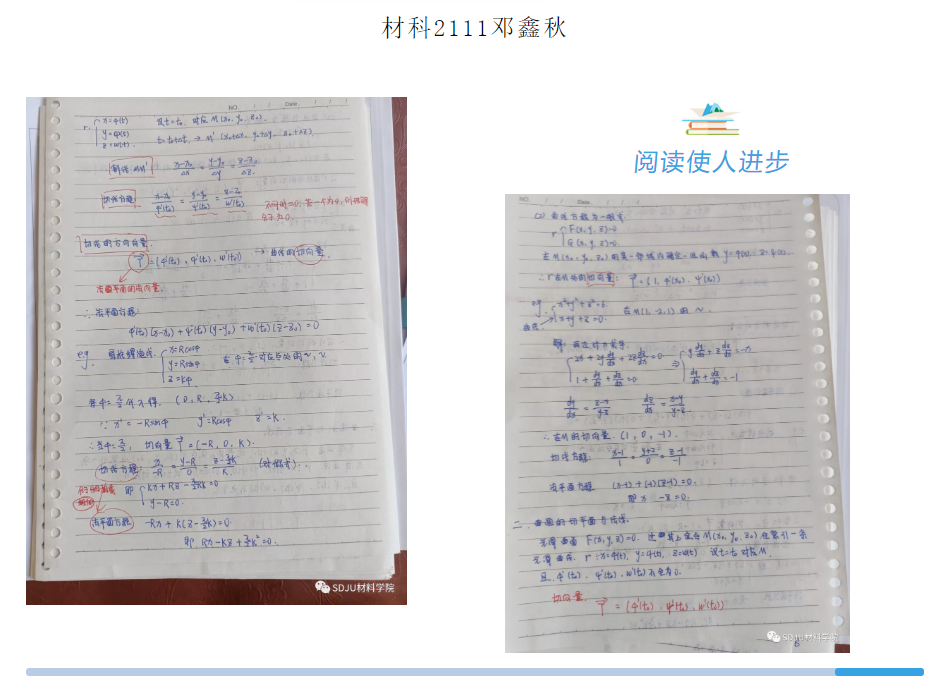 材科2111邓鑫秋
NO. Date
x=φ(t) 设t=t₀ 对应M(x₀, y₀, z₀)
r y=ψ(t)
z=ω(t) t=t₀+Δt → M'(x₀+Δx, y₀+Δy, z₀+Δz)
割线MM' x-x₀/Δx = y-y₀/Δy = z-z₀/Δz
切线方程: x-x₀/φ'(t₀) = y-y₀/ψ'(t₀) = z-z₀/ω'(t₀)
切线的方向向量
T = {φ'(t₀), ψ'(t₀), ω'(t₀)} → 曲线的切向量
法平面的法向量
∴ 法平面方程:
φ'(t₀)(x-x₀)+ψ'(t₀)(y-y₀)+ω'(t₀)(z-z₀)=0
eg. 圆柱螺旋线 x=Rcosφ
y=Rsinφ 在φ=π/2
z=kφ
(0, R, π/2k)
∵ x'=-Rsinφ y'=Rcosφ z'=k.
∴ 当φ=π/2, 切向量 T={-R, 0, k}.
切线方程: x/-R = y-R/0 = z-π/2k/k
即 kx+Rz-π/2Rk=0
y-R=0.
法平面方程 -Rx+k(z-π/2k)=0.
即 Rx-kz+π/2k²=0.
SDJU材料学院
阅读使人进步
NO. Date
(2) 曲线方程为一般式
r F(x, y, z)=0
G(x, y, z)=0.
∴r在M处的切向量: T={1, φ'(x₀), ψ'(x₀)}
eg. x²+y²+z²=6
x+y+z=0. 在M(1, -2, 1)的~.
解: 两边对x求导.
2x+2y dy/dx+2z dz/dx=0 ⇒ y dy/dx+z dz/dx=-x
1+dy/dx+dz/dx=0 dy/dx+dz/dx=-1
dy/dx = z-x/y-z dz/dx = x-y/y-z
∴在M的切向量. (1, 0, -1).
切线方程: x-1/1 = y+2/0 = z-1/-1
法平面方程 (x-1)+(-1)(z-1)=0.
即 x-z=0.
二. 曲面的切平面与法线.
光滑曲面 F(x, y, z)=0. 过曲面上定点M(x₀, y₀, z₀)任意引一条
光滑曲线. r: x=φ(t), y=ψ(t), z=ω(t). 设t=t₀对应M.
且. φ'(t₀), ψ'(t₀), ω'(t₀)不全为0.
切向量. T={φ'(t₀), ψ'(t₀), ω'(t₀)}
SDJU材料学院